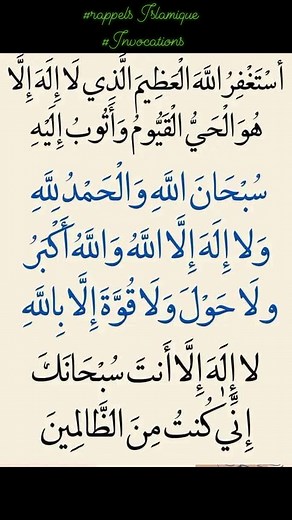 #rappels Islamique
#Invocations
أَسْتَغْفِرُ اللَّهَ الْعَظِيمَ الَّذِي لَا إِلَهَ إِلَّا
هُوَ الْحَيُّ الْقَيُّومُ وَأَتُوبُ إِلَيْهِ
سُبْحَانَ اللَّهِ وَالْحَمْدُ لِلَّهِ
وَلَا إِلَهَ إِلَّا اللَّهُ وَاللَّهُ أَكْبَرُ
وَلَا حَوْلَ وَلَا قُوَّةَ إِلَّا بِاللَّهِ
لَا إِلَٰهَ إِلَّا أَنتَ سُبْحَانَكَ
إِنِّي كُنتُ مِنَ الظَّالِمِينَ